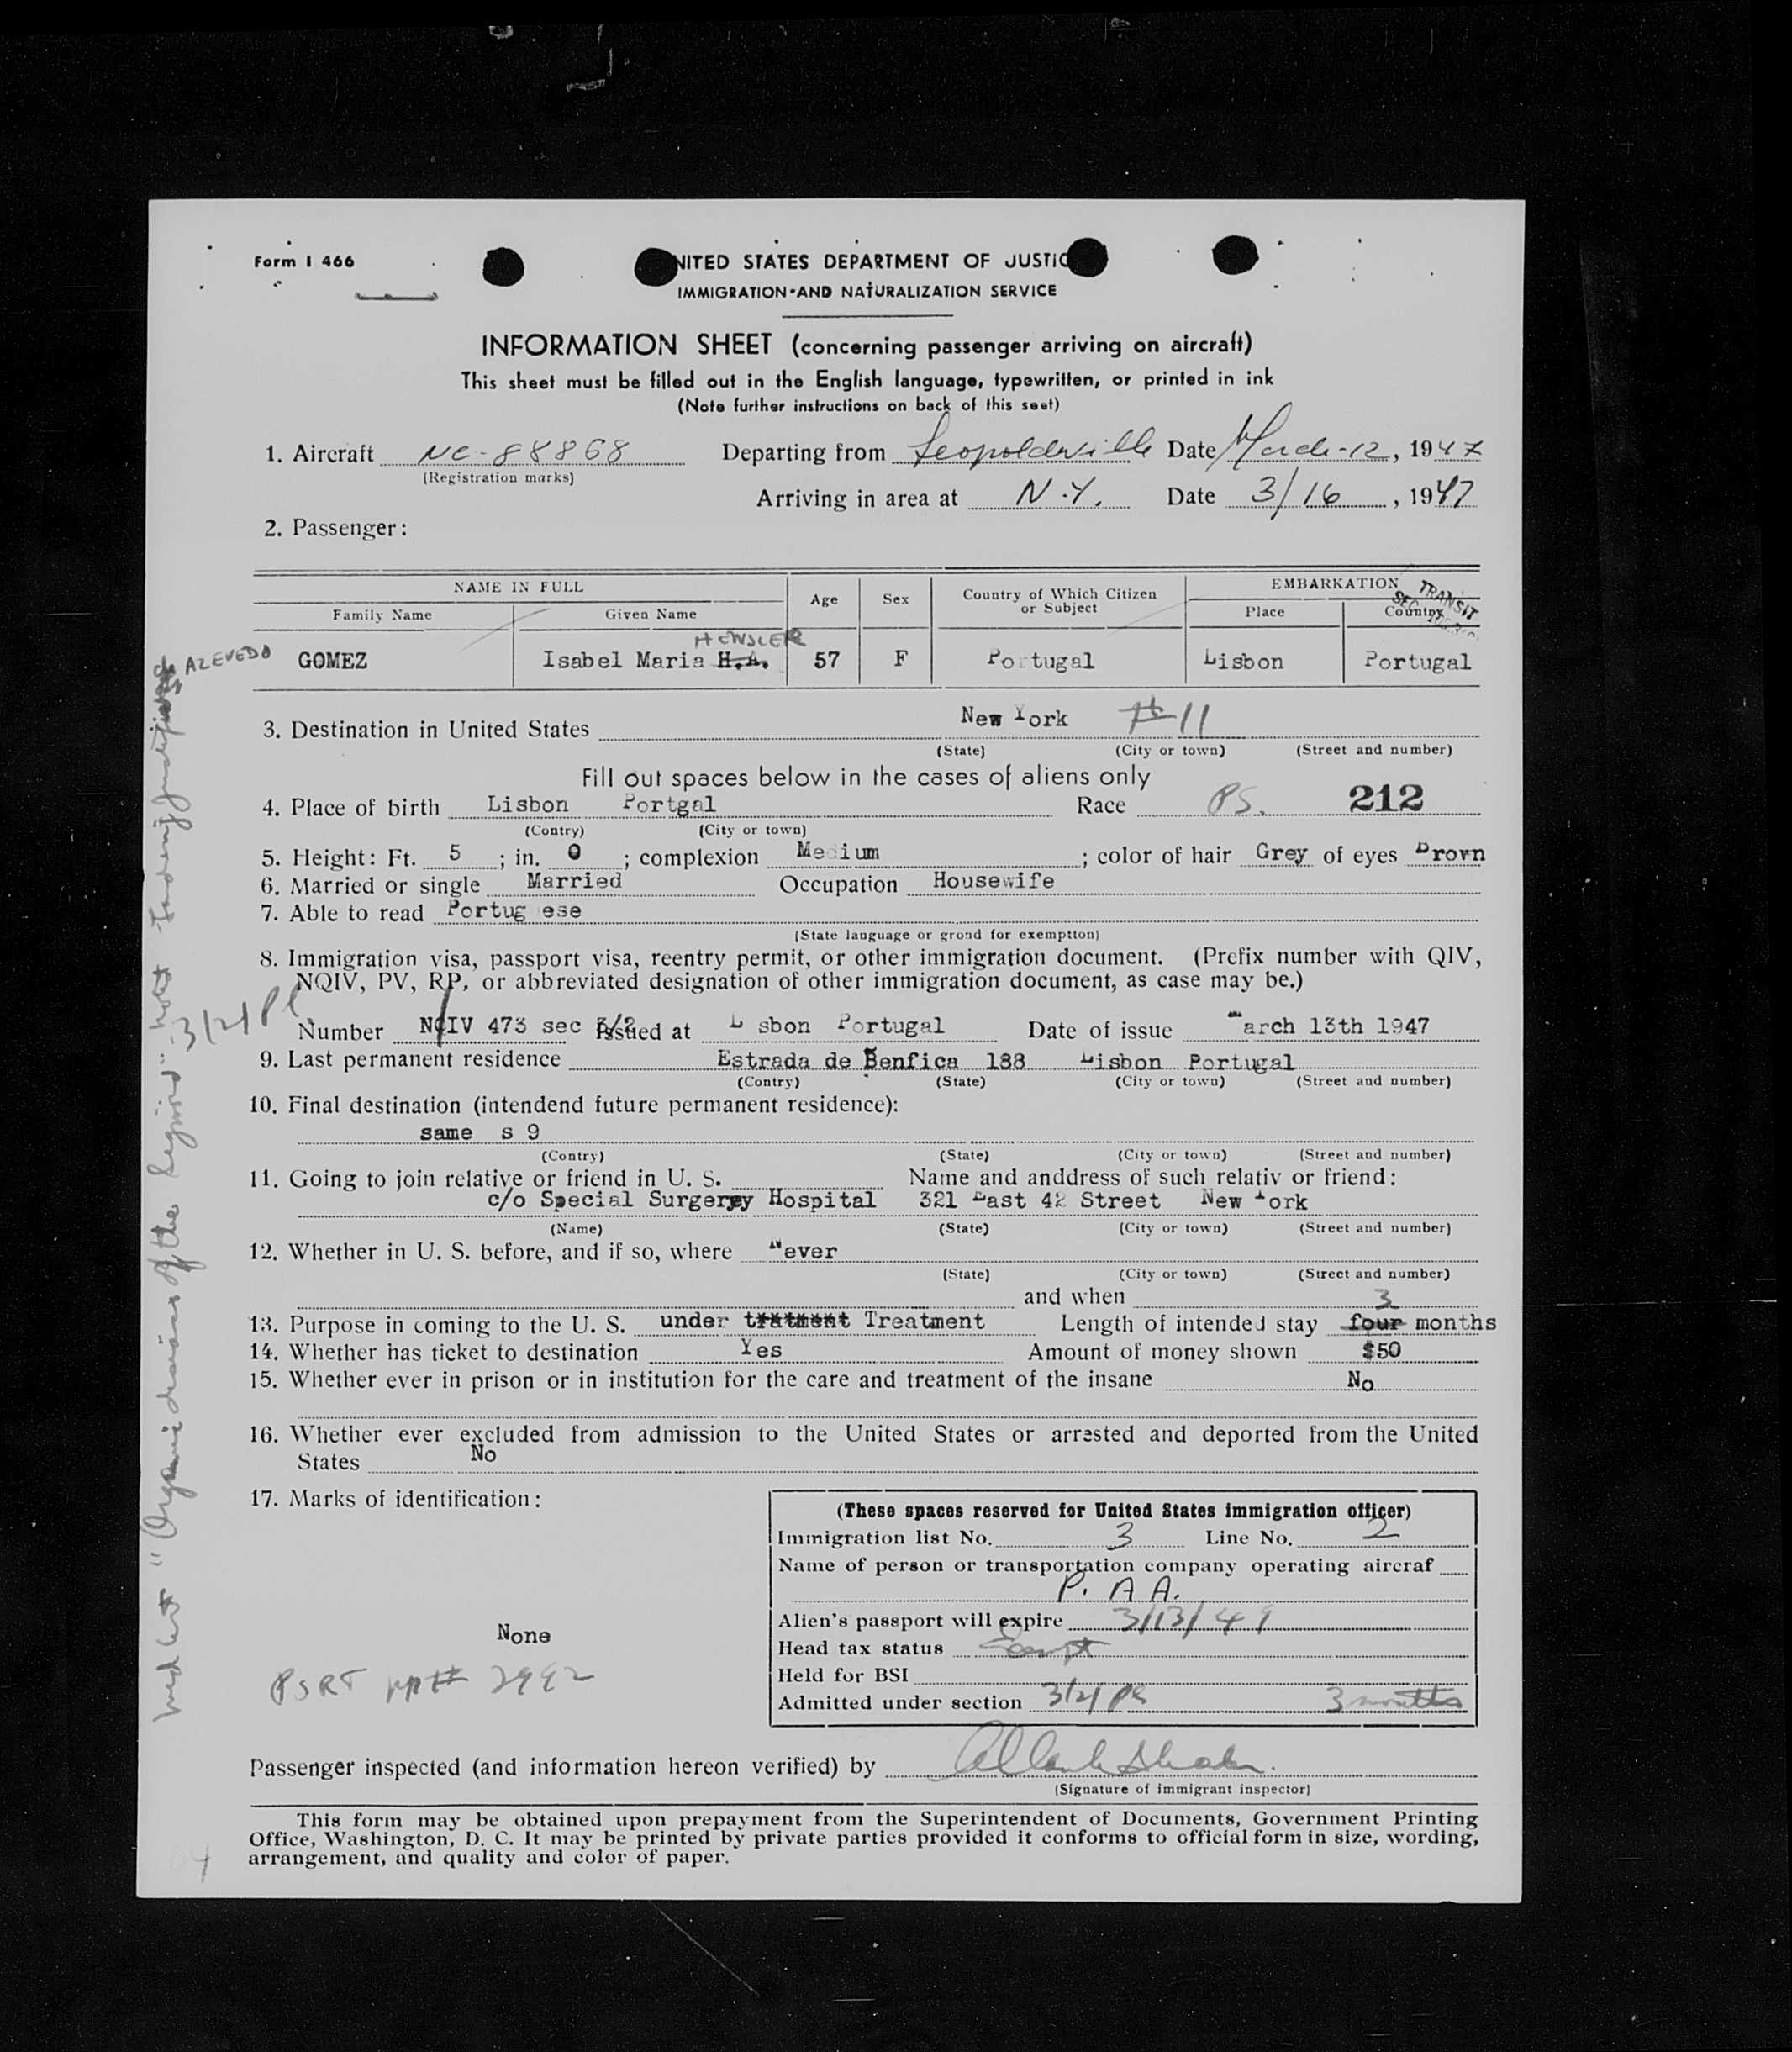 Form I 466
NITED STATES DEPARTMENT OF JUSTIC
IMMIGRATION AND NATURALIZATION SERVICE
INFORMATION SHEET (concerning passenger arriving on aircraft)
This sheet must be filled out in the English language, typewritten, or printed in ink
(Note further instructions on back of this seet)
1. Aircraft NC-88868 Departing from Leopoldville Date March-12, 1947
(Registration marks)
Arriving in area at N.Y. Date 3/16, 1947
2. Passenger:
NAME IN FULL Age Sex Country of Which Citizen or Subject EMBARKATION
Family Name Given Name Place Country
TRANSIT
HENSLER
de AZEVEDO GOMEZ Isabel Maria H.A. 57 F Portugal Lisbon Portugal
3. Destination in United States New York # 11
(State) (City or town) (Street and number)
Fill out spaces below in the cases of aliens only
4. Place of birth Lisbon Portgal Race PS. 212
(Contry) (City or town)
5. Height: Ft. 5 ; in. 0 ; complexion Medium ; color of hair Grey of eyes Brown
6. Married or single Married Occupation Housewife
7. Able to read Portug ese
(State language or grond for exemptton)
8. Immigration visa, passport visa, reentry permit, or other immigration document. (Prefix number with QIV,
NQIV, PV, RP, or abbreviated designation of other immigration document, as case may be.)
Number NQIV 473 sec 3/2 Issued at L sbon Portugal Date of issue March 13th 1947
9. Last permanent residence Estrada de Benfica 188 Lisbon Portugal
(Contry) (State) (City or town) (Street and number)
10. Final destination (intendend future permanent residence):
same s 9
(Contry) (State) (City or town) (Street and number)
11. Going to join relative or friend in U. S. Name and anddress of such relativ or friend:
c/o Special Surgerey Hospital 321 East 42 Street New York
(Name) (State) (City or town) (Street and number)
12. Whether in U. S. before, and if so, where Never
(State) (City or town) (Street and number)
and when
3
13. Purpose in coming to the U. S. under tratment Treatment Length of intended stay four months
14. Whether has ticket to destination Yes Amount of money shown $50
15. Whether ever in prison or in institution for the care and treatment of the insane No
16. Whether ever excluded from admission to the United States or arrested and deported from the United
States No
17. Marks of identification:
None
PSRT pp# 2992
(These spaces reserved for United States immigration officer)
Immigration list No. 3 Line No. 2
Name of person or transportation company operating aircraf
P. A A.
Alien's passport will expire 3/13/49
Head tax status Exempt
Held for BSI
Admitted under section 3/2/ 3 months
Passenger inspected (and information hereon verified) by
(Signature of immigrant inspector)
This form may be obtained upon prepayment from the Superintendent of Documents, Government Printing
Office, Washington, D. C. It may be printed by private parties provided it conforms to official form in size, wording,
arrangement, and quality and color of paper.
med cert "Organic disease of the
3/2/